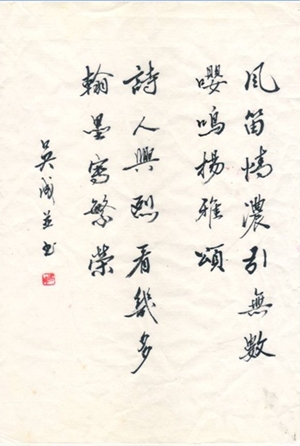 風笛情濃引無數
嚶鳴揚雅頌
詩人興熙看幾多
翰墨寫繁榮
吳成並書